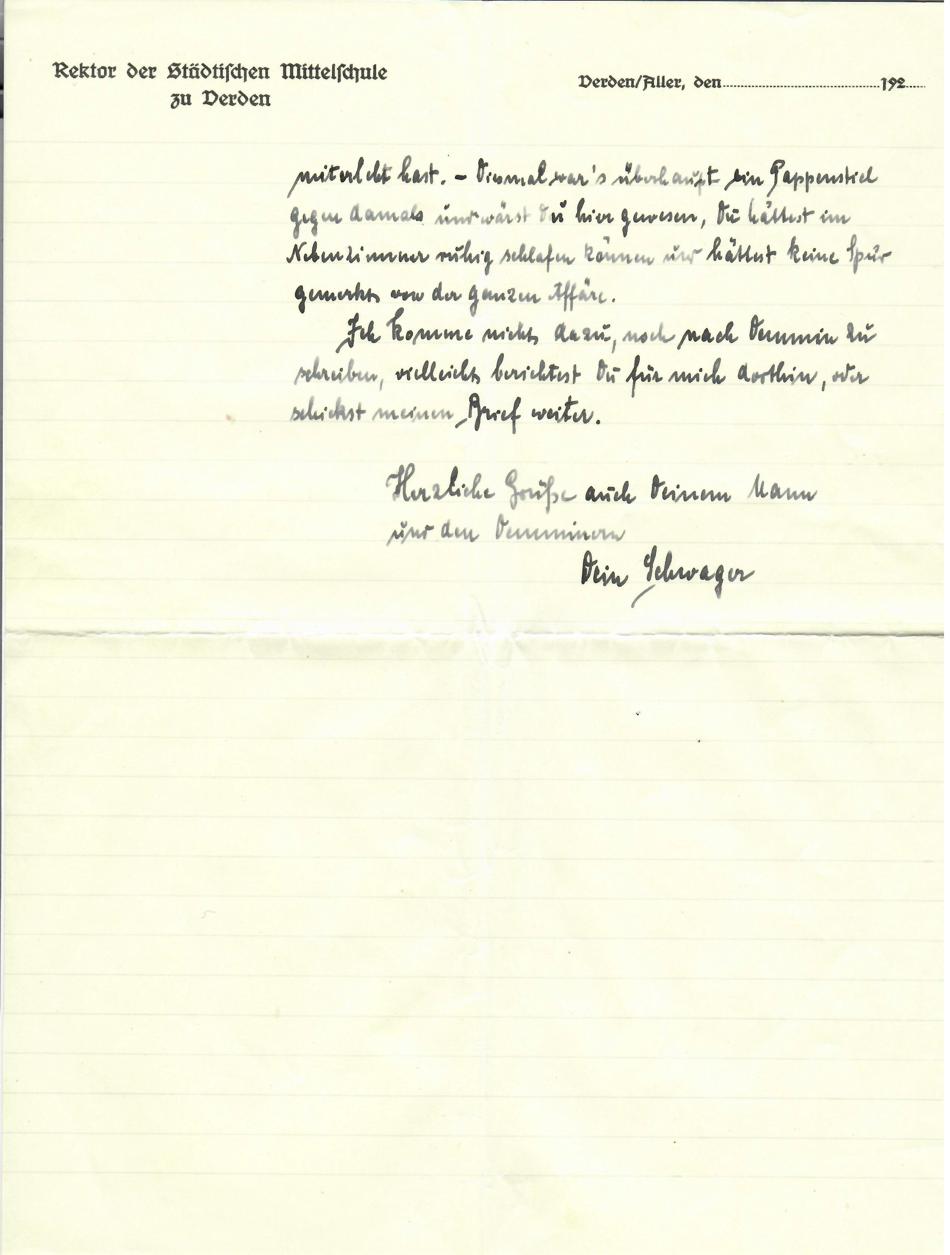 Rektor der Städtischen Mittelschule
zu Verden
Verden/Aller, den 192
miterlebt hast. – Diesmal war's überhaupt ein Pappenstiel
gegen damals und wärst Du hier gewesen, Du hättest im
Nebenzimmer ruhig schlafen können und hättest keine Spur
gemerkt von der ganzen Affäre.
Ich komme nicht dazu, noch nach Demmin zu
schreiben, vielleicht berichtest Du für mich dorthin, oder
schickst meinen Brief weiter.
Herzliche Grüße auch Deinem Mann
und den Demminern
Dein Schwager